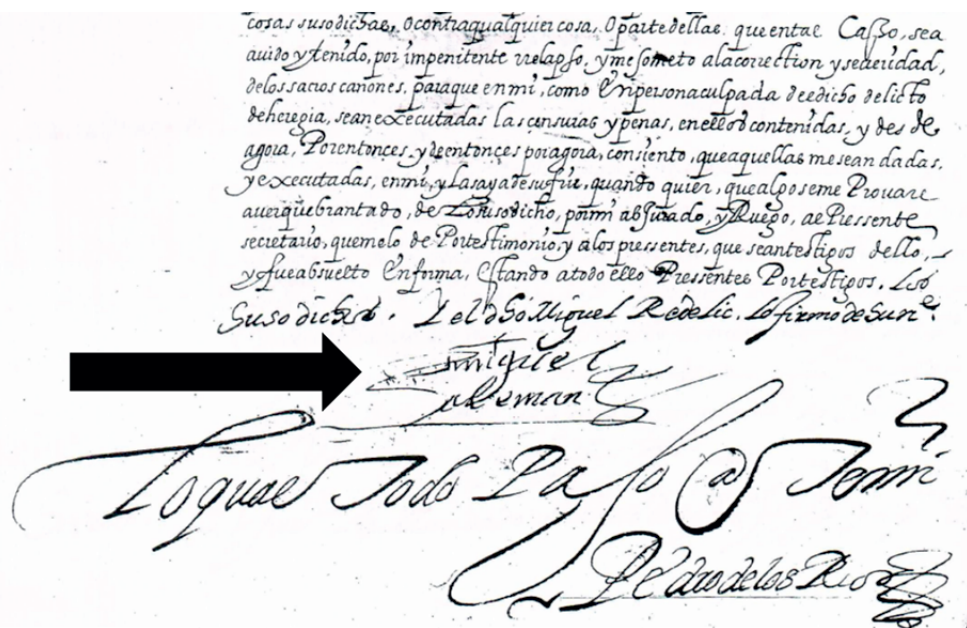 cosas susodichas, o contra qualquier cosa, o parte dellas. que en tae Casso, sea
auido y tenido, por impenitente relapso, y me someto a la correction y seueridad,
de los sacros canones, para que en mi, como En persona culpada de e dicho delicto
de heregia, sean executadas las censuras y penas, en ellos contenidas, y des de
agora, Por entonces, y de entonces por agora, consiento, que aquellas me sean dadas,
y executadas, en mi, y las aya de sufrir, quando quier, que algo se me Prouare
auer quebrantado, de Lo susodicho, por mi abJurado, y Ruego, ae Pressente
secretario, que me lo de Por testimonio, y a los pressentes, que sean testigos dello,
y fue absuelto En forma, Estando a todo ello Pressentes Por testigos, Los
Susodichos. Miguel Redelic, lo firmo de su
miguel
aleman
Lo quae Todo Paso Ante mi
Pedro de los Rios